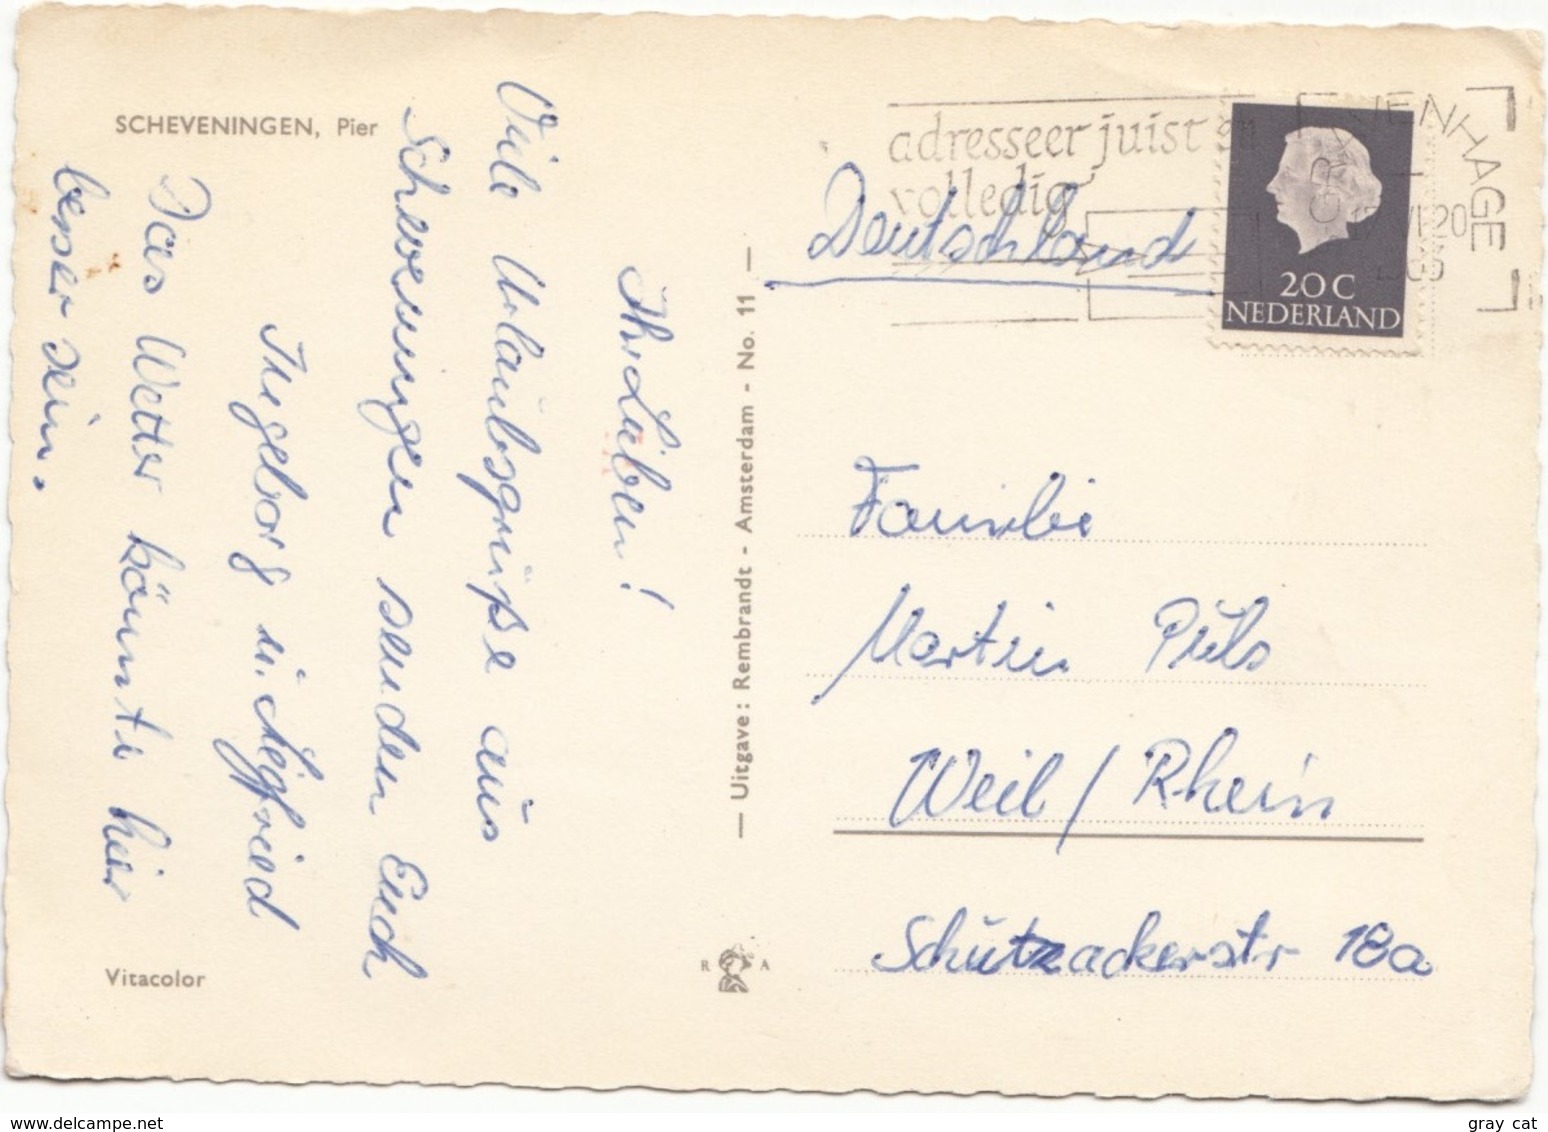 SCHEVENINGEN, Pier
Ihr Lieben!
Viele Urlaubsgrüße aus
Scheveningen senden Euch
Ingeborg u. Siegfried
Das Wetter könnte hier
besser sein.
Vitacolor
— Uitgave: Rembrandt - Amsterdam - No. 11 —
R A
adresseer juist en
volledig
GRAVENHAGE
20 C
NEDERLAND
Deutschland
Familie
Martin Puls
Weil / Rhein
Schützackerstr 18a
www.delcampe.net
gray cat